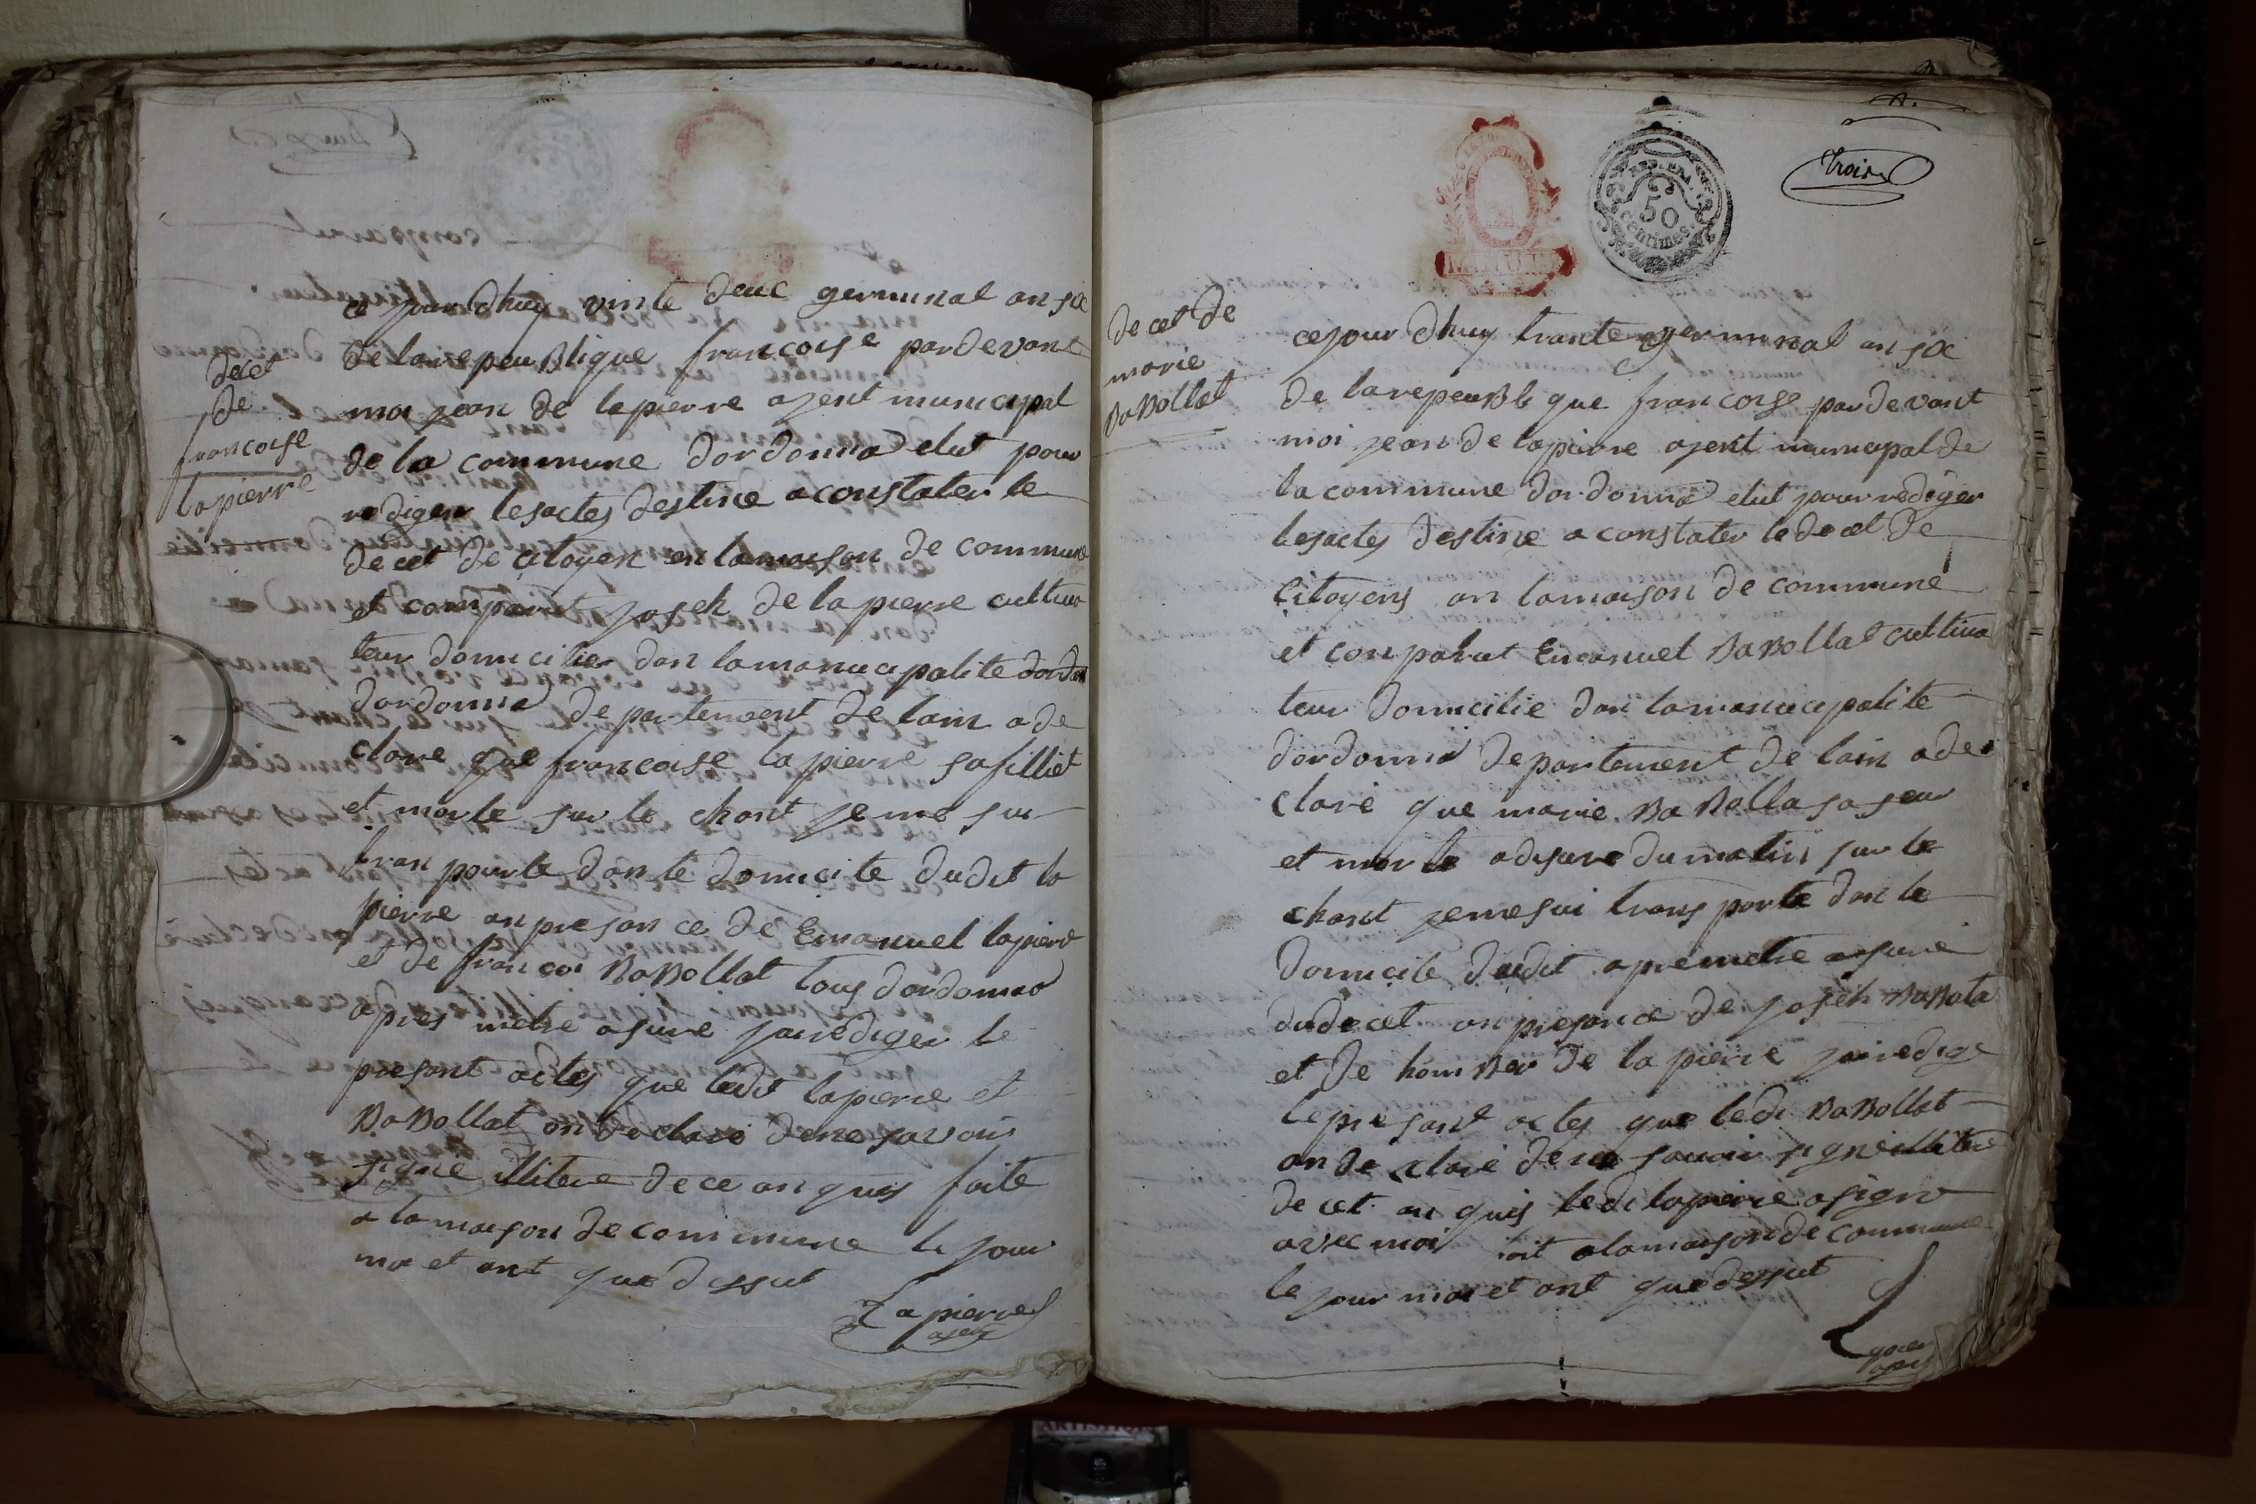 decet
de
francoise
lapierre
ce jour dhuy vinte deuc germinal an six
de larepeublique francoise pardevant
moi jean de lapierre ajent municipal
de la commune dordonna elut pour
rediger lesactes destine a constater le
decet de citoyen en lamaison de commune
et comparut joseh de la pierre cultiva
teur domicilier dan lamanucipalite dordon
dordonna departement de lain a de
clare que francoise lapierre safilliet
et morte sur le chant je me sui
tran porte dan le domicile dudit la
pierre an presance de Emanuel lapierre
et de francoi BaBollat tous dordonna
apres metre asure jairediger le
presant actes que ledit lapierre et
BaBollat on declare dene savoir
signe illitere de ce anquis faite
a lamaison de commune le jour
moi et ant que dessut
Lapierre
ajent
trois
REP. FRA.
50
centimes
decet de
marie
BaBollat
cejour dhuy trante germinal an six
de larepeublique francoise pardevant
moi jean de lapierre ajent municipal de
la commune dordonna elut pour rediger
lesactes destine a constater le decet de
Citoyens an lamaison de commune
et conparut Emanuel BaBollat cultiva
teur domicilie dan lamanucipalite
dordonna departement de lain a de
clare que marie BaBolla sa seur
et morte adisure dumatin sur le
chant jemesui transporte dan le
domicile dudit apremetre asure
dudecet an presance de joseh BaBola
et de homBer de la pierre jairedige
le presant actes que ledi BaBollat
on de clare de ne savoir signe illitere
de cet an quis ledi lapierre a signe
avec moi fait alamaison de commune
le jour moi et ant que dessut